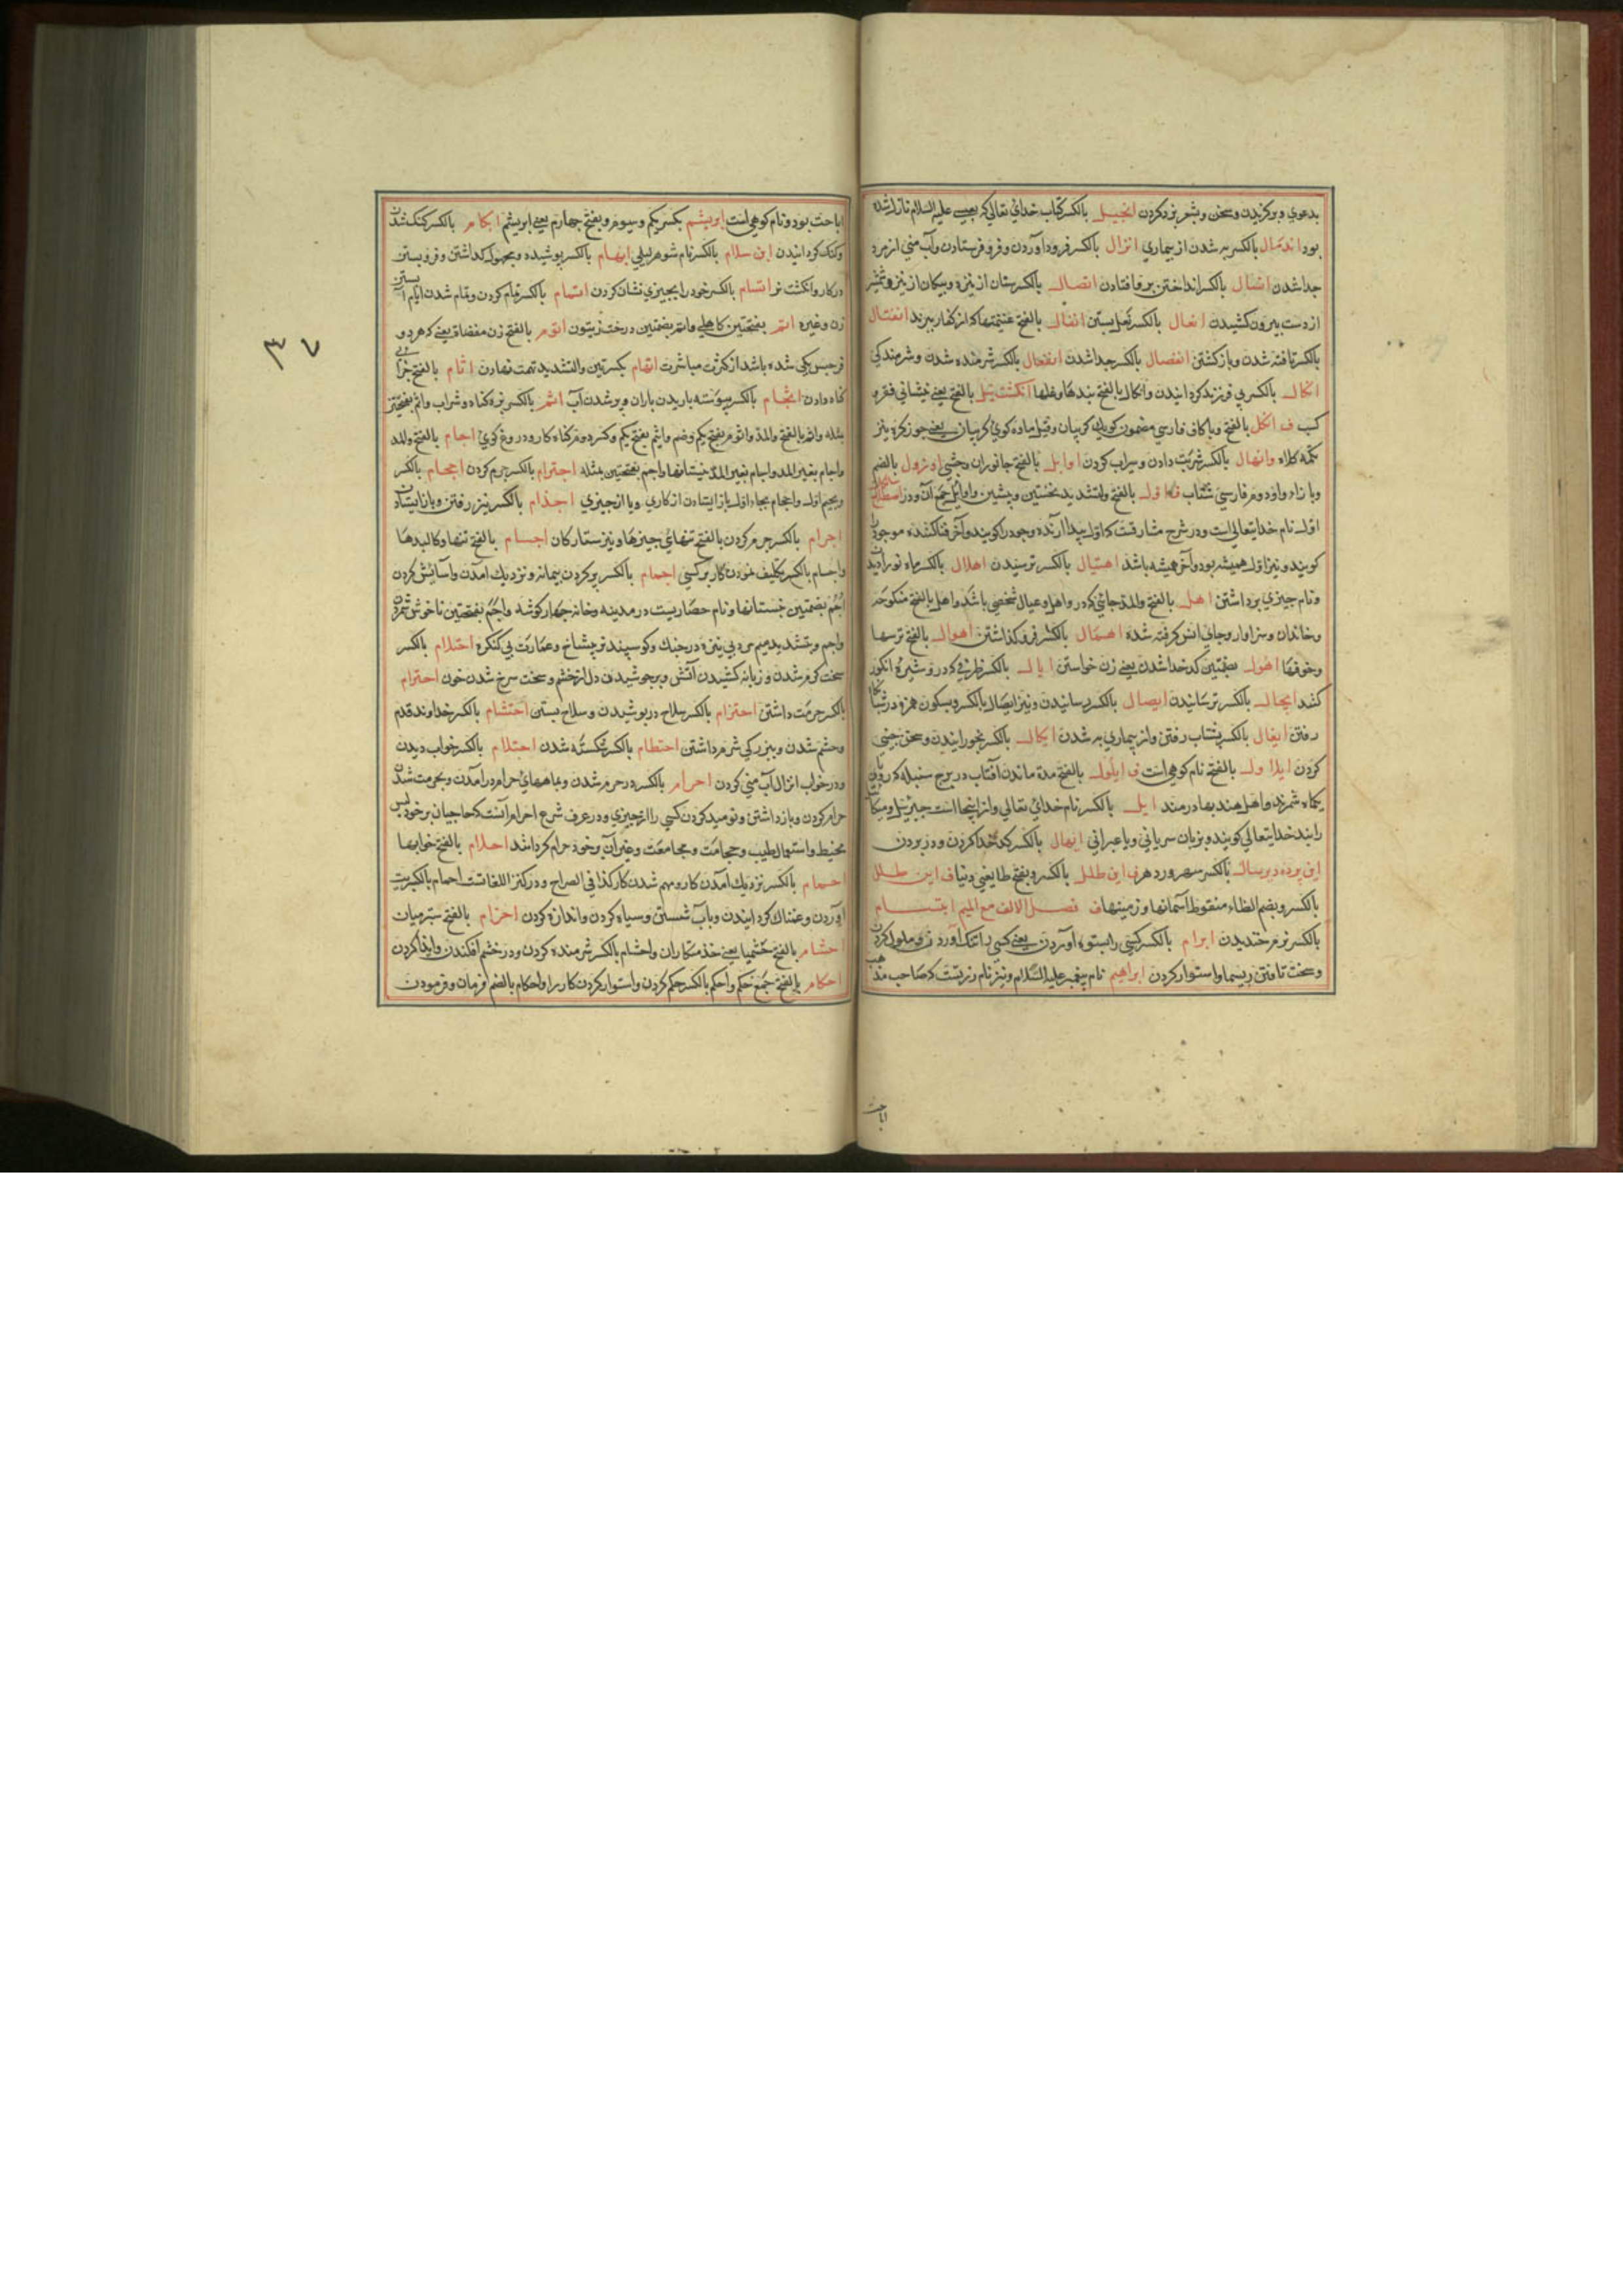 بدعوي و برگزیدن و سخن و شعر بر خود کردن انجیل بالکسر کتاب خدای تعالی که بعیسی علیه السلام نازل شده
بود اندمال بالکسر به شدن از بیماری انزال بالکسر فرود آوردن و فرو فرستادن و آب منی از مرد
جدا شدن بالکسر انداختن افتادن بالکسر ستان از نیزه و پیکان از تیر و شمشیر
از دست بیرون کشیدن انعال بالکسر نعل بستن انفال بالفتح غنیمتها که از کفار برند انفتال
بالکسر تافته شدن و بازگشتن انفصال بالکسر جدا شدن انفعال بالکسر شرمنده شدن و شرمندگی
انکال بالکسر بی فرزند گردانیدن و انکال بالفتح بندها و غلها بالفتح یعنی
کب ف انکل بالفتح و با کاف فارسی کریبان و قیل ماده کوی کریبان یعنی جوز کره نیز
تکمه کلاه وانهال بالکسر شربت دادن و سیراب کردن اوابل بالفتح جانوران وحشی بالضم
و با زاء و واو دوم فارسی شتاب ف اول بالفتح والتشدید نخستین و پیشین و اوایل جمع آن و در اصطلاح
اول نام خدایتعالی است و در شرح مشارقت که اول پیدا آرنده وجود را گویند و آخر فنا کننده موجود
گویند و نیز اول همیشه بود و آخر همیشه باشد اهتیال بالکسر ترسیدن اهلال بالکسر ماه نو را دیدن
و نام چیزی برداشتن اهل بالفتح والمد جائی که در و اهل و عیال شخصی باشد و اهل بالفتح منکوحه
و خاندان و سزاوار و جای انس گرفته شده اهمال بالکسر فرو گذاشتن اهوال بالفتح ترسها
و خوفها اهول بضمتین کدخدا شدن یعنی زن خواستن ایال بالکسر ظرفی که در و شیره انگور
کنند ایجال بالکسر ترسانیدن ایصال بالکسر رسانیدن و نیز ایصال بالکسر و بسکون همزه در شبانگاه
رفتن ایغال بالکسر بشتاب رفتن و از بیماری به شدن ایکال بالکسر بخورانیدن و سخن چینی
کردن ایلاول بالفتح نام کوهی است ف ایلول بالفتح مدة ماندن آفتاب در برج سنبله که رومیان
یکماه شمرند و اهل هند بهادرمند ایل بالکسر نام خدای تعالی و از اینجا است جبرئیل و میکائیل
رایند خدایتعالی گویند و بزبان سریانی و یا عبرانی ایهال بالکسر کدخدا کردن و دز بردن
این پرده دیرسال بالکسر سهر ورد هر ف این طلل بالکسر و بفتح طا یعنی دنیا ف این طلل
بالکسر و بضم الظاء منقوط آسمانها و زمینها ف فصل الالف مع المیم ابتسام
بالکسر نرم خندیدن ابرام بالکسر کسی را بستوه آوردن یعنی کسی را تنک آوردن و ملول کردن
و سخت تافتن ریسمان و استوار کردن ابراهیم نام پیغمبر علیه السلام و نیز نام زرتشت که صاحب مذهب
اباحت
اباحت بود و نام کوهی است ابریشم بکسر یکم و سیوم و بفتح چهارم یعنی ابریشم ابکام بالکسر کنک شدن
و کنک گردانیدن ابن سلام بالکسر نام شوهر لیلی ابهام بالکسر پوشیده و مجهول گذاشتن و فرو بستن
در کار و انکشت نر ابتسام بالکسر خود را بچیزی نشان کردن اتمام بالکسر تمام کردن و تمام شدن ایام آبستن
زن و غیره اتم بفتحتین کاهلی و اتم بضمتین درخت زیتون اتوم بالفتح زن مفضاة یعنی که هر دو
فرجش یکی شده باشد از کثرت مباشرت اتهام بکسرتین والتشدید تهمت نهادن اثام بالفتح جزای
گناه دادن اثجام بالکسر پیوسته باریدن باران و پر شدن آب اثم بالکسر بزه گناه و شراب و اثم بفتحتین
مثله و اثم بالفتح والمد و اثوم بفتح یکم و ضم و اثیم بفتح یکم و کسر دوم گناه کار و دروغ گوی اجام بالفتح والمد
و اجام بغیر المد و اجم بضمتین مثله اجترام بالکسر جرم کردن احجام بالکسر
و بجیم اول و احجام بحاء اول باز ایستادن از کاری و یا از چیزی اجذام بالکسر تیز رفتن و باز ایستادن
اجرام بالکسر جرم کردن بالفتح تنهای چیزها و نیز ستارکان اجسام بالفتح تنها و کالبدها
و اجسام بالکسر تکلیف نمودن کار بر کسی اجمام بالکسر پر کردن پیمانه و نزدیک آمدن و آسایش کردن
اجم بضمتین نیستانها و نام حصاریست در مدینه و خانه چهار کوشه و اجم بفتحتین ناخوش شمردن
و اجم و بتشدید میم مردی بی نیزه در جنک و کوسپند نر بیشاخ و عمارت بی کنکره احتدام بالکسر
سخت گرم شدن و زبانه کشیدن آتش و بر جوشیدن دل از خشم و سخت سرخ شدن خون احترام
بالکسر حرمت داشتن احتزام بالکسر سلاح در پوشیدن و سلاح بستن احتشام بالکسر خداوند قدم
و حشم شدن و بزرگی شرم داشتن احتطام بالکسر شکسته شدن احتلام بالکسر خواب دیدن
و در خواب انزال آب منی کردن احرام بالکسر در حرم شدن و بماههای حرام در آمدن و بحرمت شدن
حرام کردن و باز داشتن و نومید کردن کسی را از چیزی و در عرف شرع احرام آنست که حاجیان بر خود لبس
مخیط و استعمال طیب و حجامت و مجامعت و غیر آن بر خود حرام گردانند احلام بالفتح خوابها
احمام بالکسر نزدیک آمدن کار و مهم شدن کار کذا فی الصراح و در کنز اللغات است احمام بالکسر تب
آوردن و غمناک گردانیدن و بآب شستن و سیاه کردن و اندازه کردن احزام بالفتح ستر میان
احشام بالفتح خشمها یعنی خدمتکاران و احشام بالکسر شرمنده کردن و در خشم افکندن و ایذا کردن
احکام بالفتح جمع حکم و احکم بالکسر حکم کردن و استوار کردن کار را و احکام بالضم فرمان و فرمودن
٣٧